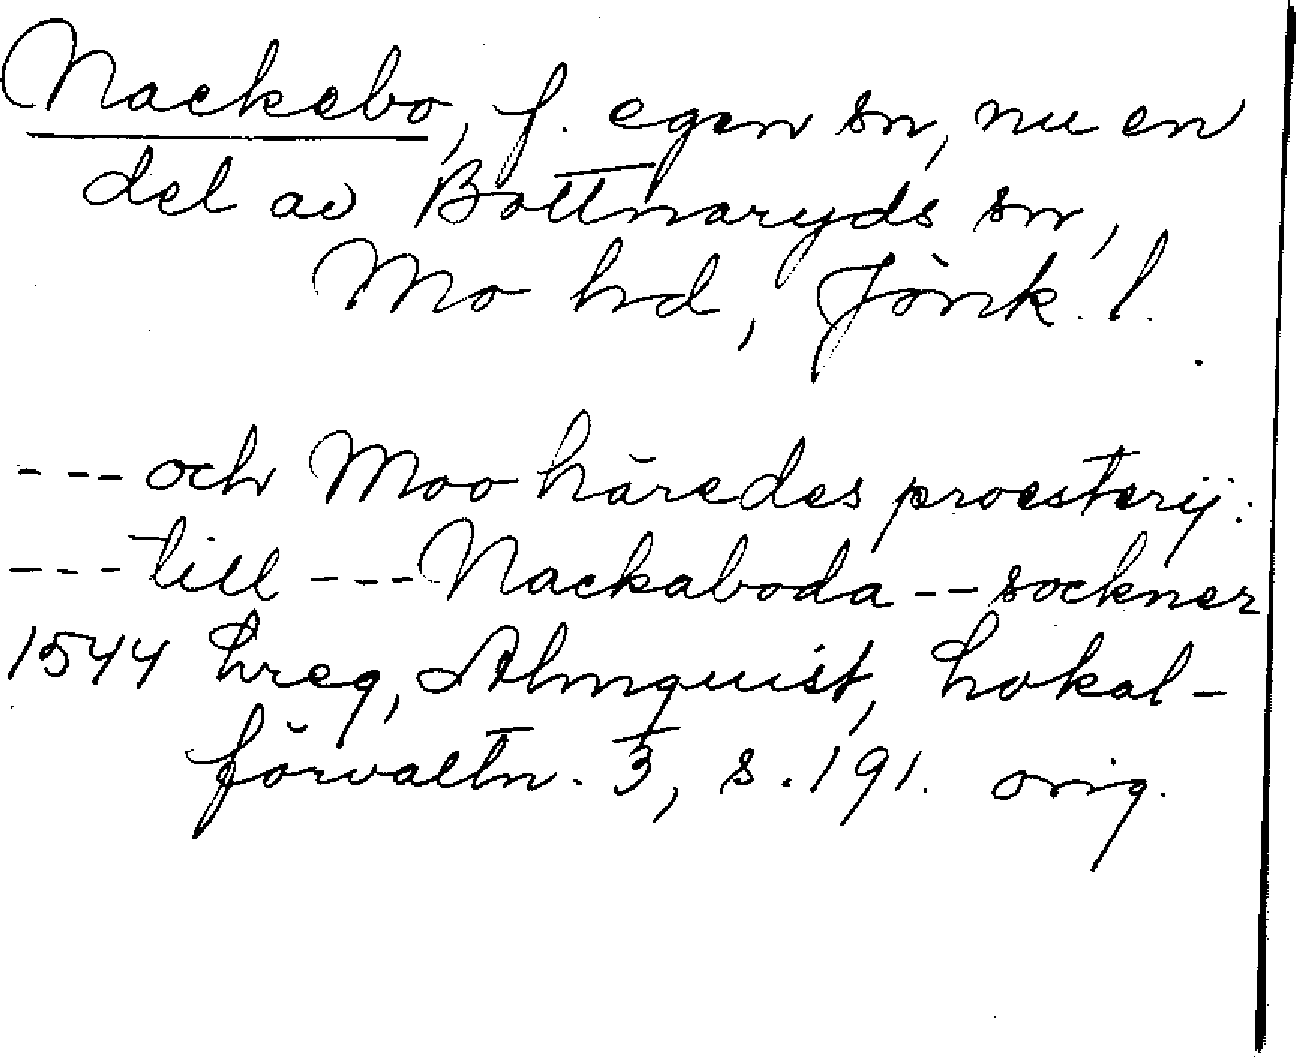 Nackebo, f. egen sn, nu en
del av Bottnaryds sn,
Mo hd, Jönk. l.
--- och Moo häredes proesterij:
--- till --- Nackaboda -- sockner
1544 Lreg, Almquist, Lokal-
förvaltn. 3, s. 191. orig.